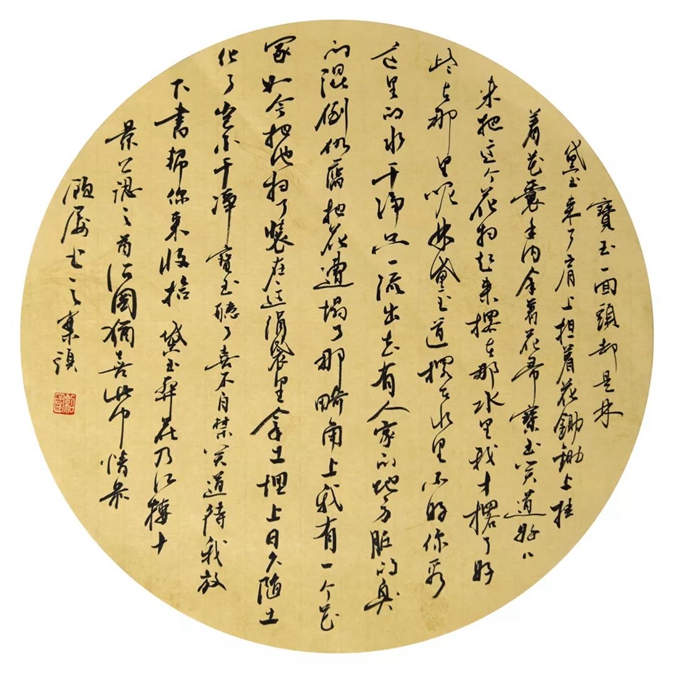 寶玉一囬頭却是林
黛玉来了肩上担着花鋤鋤上挂
着花囊手内拿着花帚寶玉笑道好〃
来把这个花扫起来撂在那水里我才撂了好
些在那里呢林黛玉道撂在水里不好你看
这里的水干净只一流出去有人家的地方脏的臭
的混倒仍舊把花遭塌了那畸角上我有一个花
冢如今把他扫了装在这绢袋里拿土埋上日久随土
化了岂不干净寶玉聽了喜不自禁笑道待我放
下書帮你来收拾 黛玉葬花乃红樓十
景之首喜此情景